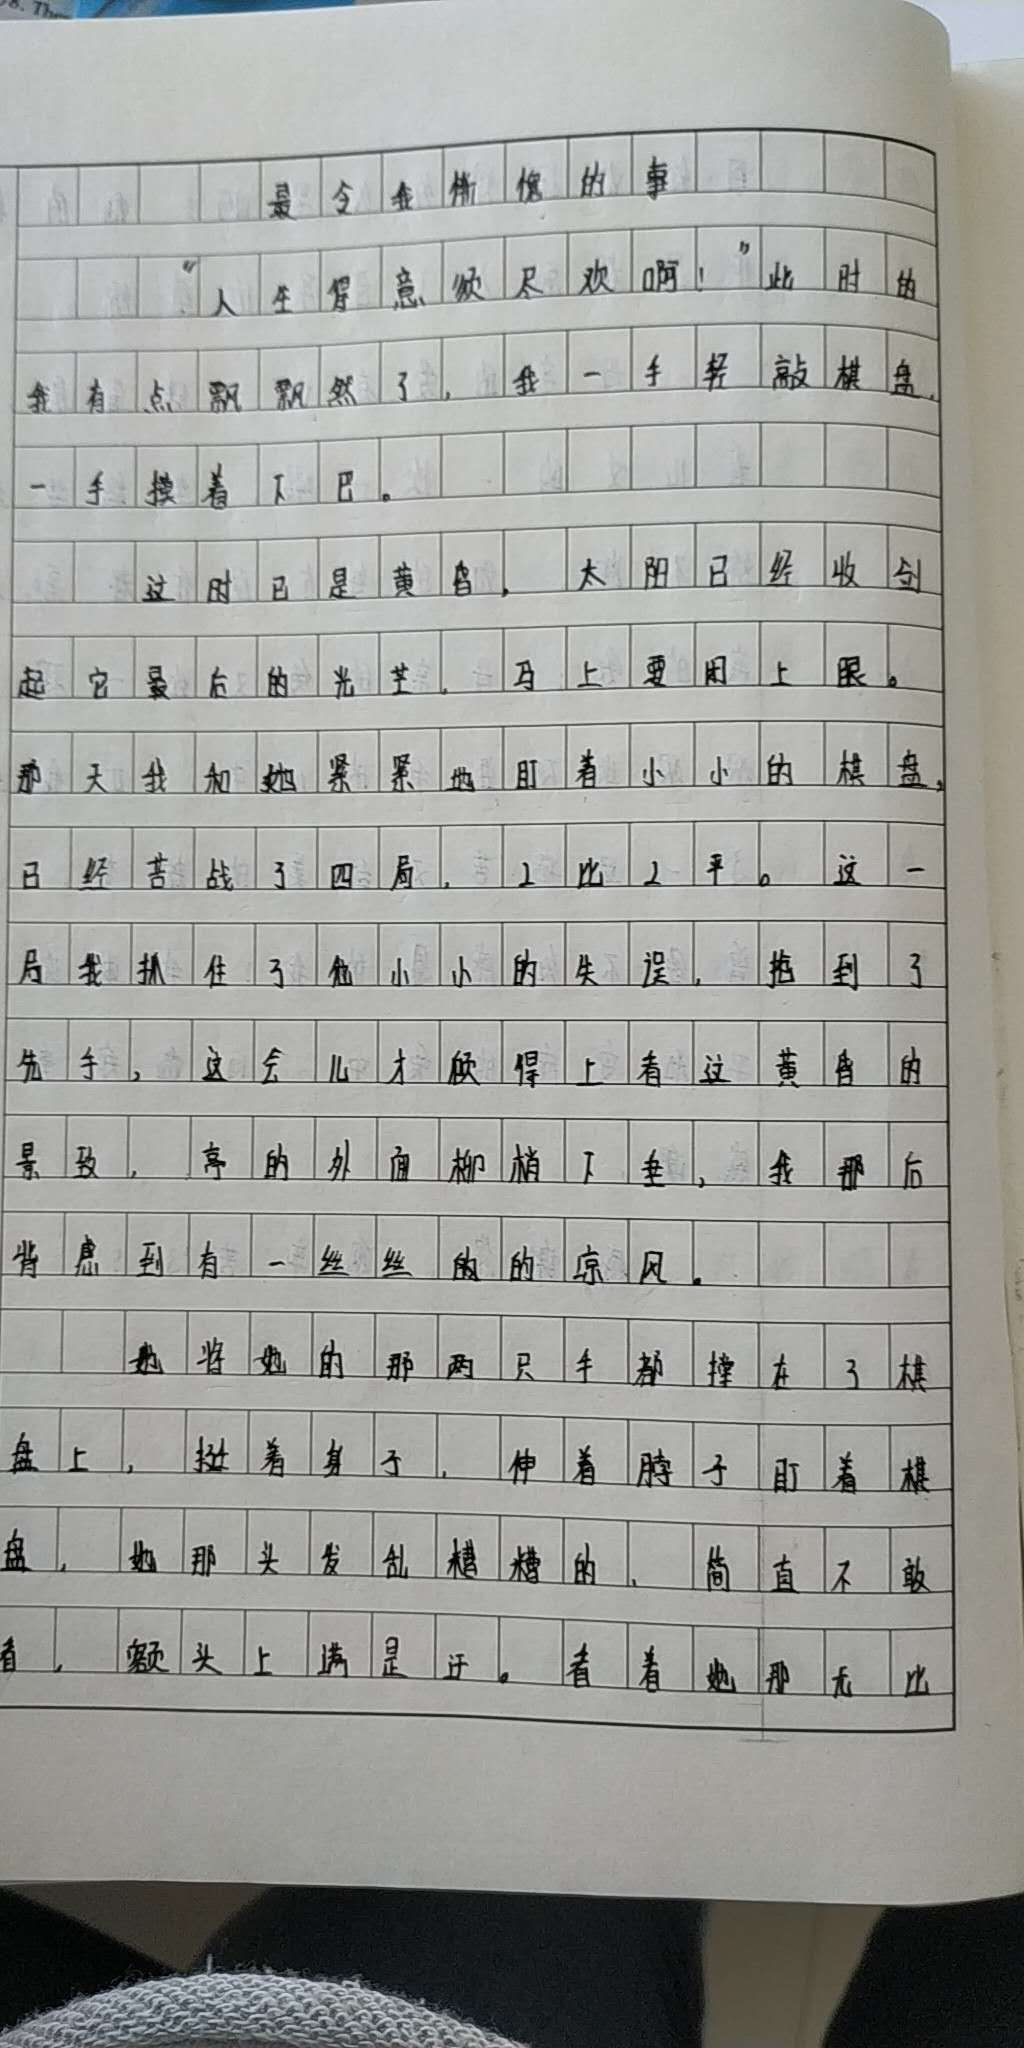 8. The
最令我惭愧的事
“人生得意须尽欢啊！”此时的
我有点飘飘然了，我一手轻敲棋盘，
一手摸着下巴。
这时已是黄昏，太阳已经收剑
起它最后的光芒，马上要闭上眼。
那天我和她紧紧地盯着小小的棋盘，
已经苦战了四局，2比2平。这一
局我抓住了他小小的失误，抢到了
先手，这会儿才顾得上看这黄昏的
景致，亭的外面柳梢下垂，我那后
背感到有一丝丝的的凉风。
她将她的那两只手都撑在了棋
盘上，挺着身子，伸着脖子盯着棋
盘，她那头发乱糟糟的，简直不敢
看，额头上满是汗。看着她那无比